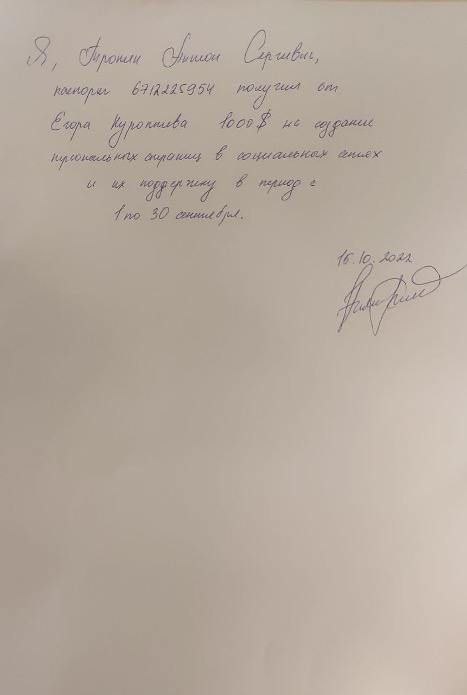 Я, Тронин Антон Сергеевич,
паспорт 6712225954 получил от
Егора Куроптева 1000$ на создание
персональных страниц в социальных сетях
и их поддержку в период с
1 по 30 сентября.
15.10.2022